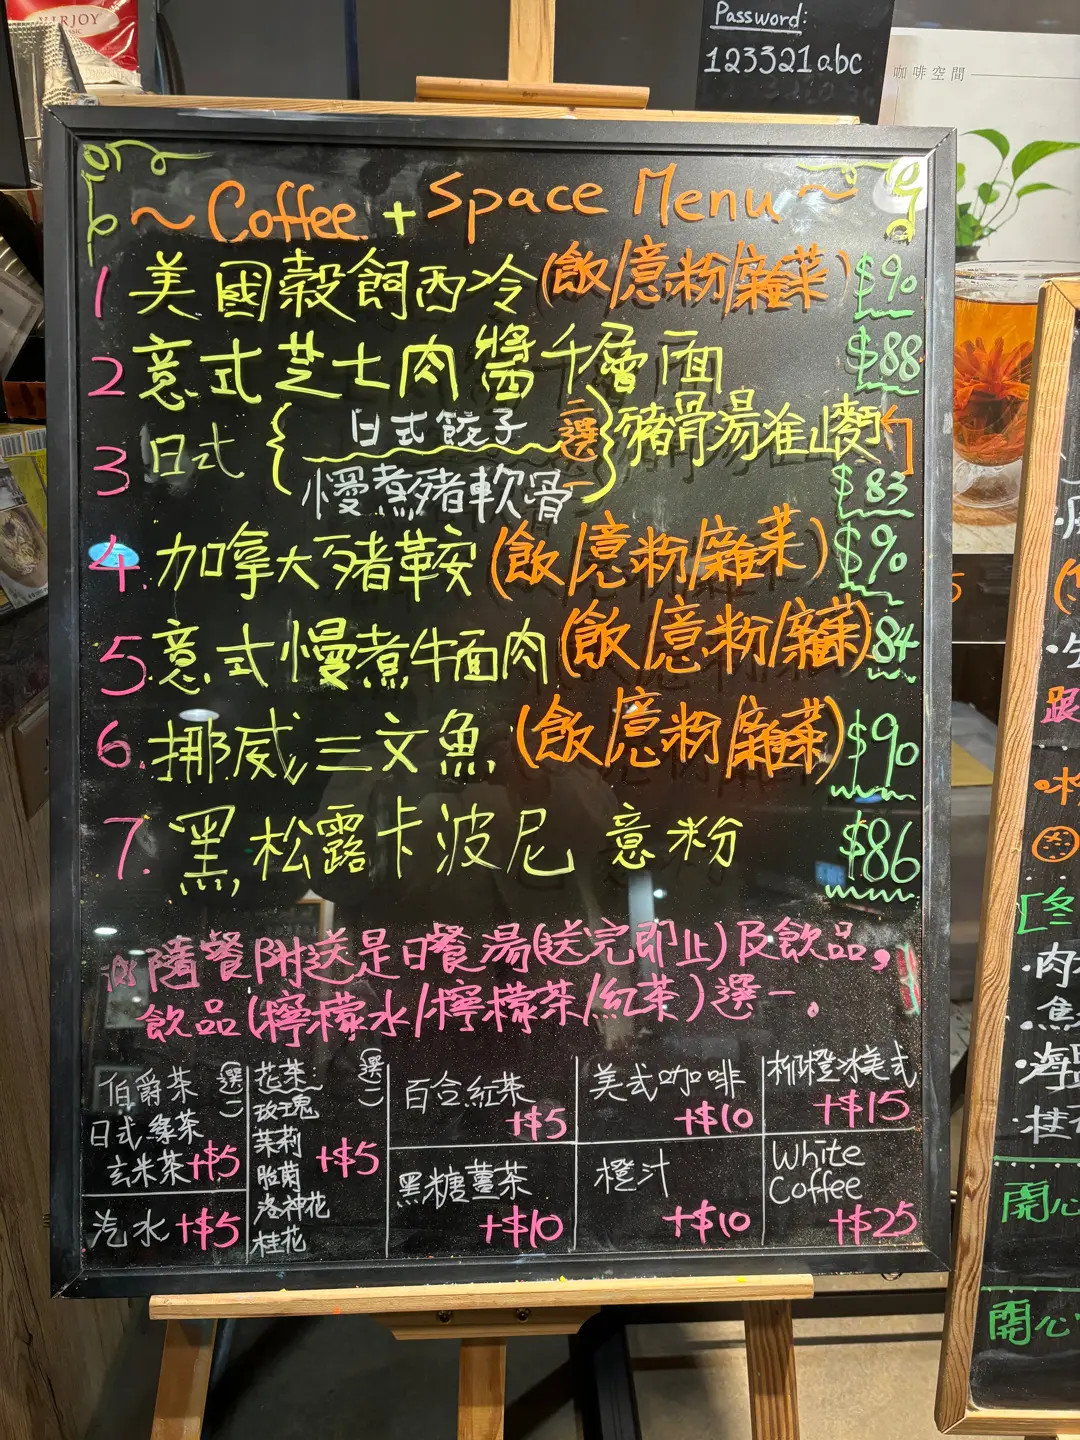 VIRJOY
Password:
123321abc
咖啡空間
~ Coffee + Space Menu ~
1 美國穀飼西冷(飯/意粉/雜菜) $90
2 意式芝士肉醬千層面 $88
3 日式 { 日式餃子 二選一 慢煮豬軟骨 } 豬骨湯淮山麵 $83
4. 加拿大豬鞍(飯/意粉/雜菜) $90
5. 意式慢煮牛面肉(飯/意粉/雜菜) 84
6. 挪威三文魚(飯/意粉/雜菜) $90
7. 黑松露卡波尼意粉 $86
隨餐附送是日餐湯(送完即止)及飲品,
飲品(檸檬水/檸檬茶/紅茶)選一。
伯爵茶
日式綠茶
玄米茶 +$5
汽水 +$5
花茶:
玫瑰
茉莉
胎菊
洛神花
桂花
+$5
百合紅茶
+$5
黑糖薑茶
+$10
美式咖啡
+$10
橙汁
+$10
柳橙冰美式
+$15
White
Coffee
+$25
跟
[冬
肉
魚
海
桂
開心
開心